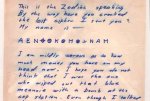 This is the Zodiac speaking
By the way have you cracked
the last cipher I sent you?
My name is —
AEN⊕⊗K⊗M⊗⅃NAM
I am mildly cerous as to how
much money you have on my
head now. I hope you do not
think that I was the one
who wiped out that blue
meannie with a bomb at the
cop station. Even though I talked